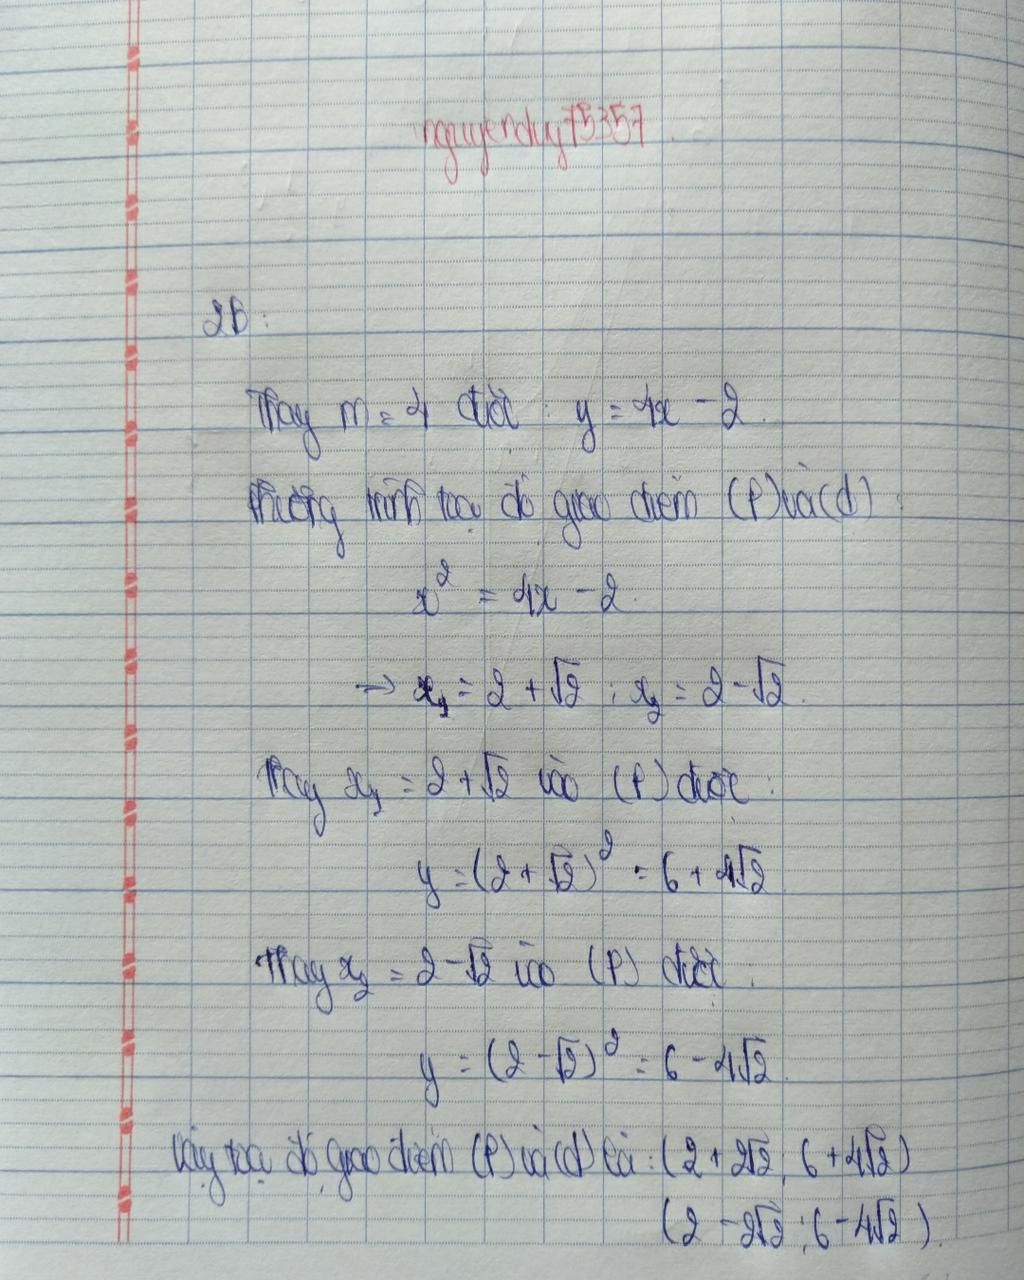 nguyenduy75357
2B:
Thay m = 4 được: y = 4x - 2.
Phương trình toạ độ giao điểm (P) và (d):
x² = 4x - 2.
→ x₁ = 2 + √2 ; x₂ = 2 - √2.
Thay x₁ = 2 + √2 vào (P) được:
y = (2 + √2)² = 6 + 4√2
Thay x₂ = 2 - √2 vào (P) được:
y = (2 - √2)² = 6 - 4√2.
Vậy toạ độ giao điểm (P) và (d) là: (2 + 2√2; 6 + 4√2)
(2 - 2√2; 6 - 4√2).